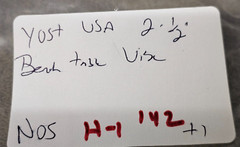 Yost USA 2-1/2"
Bench Vise
NOS H-1 '42 +1